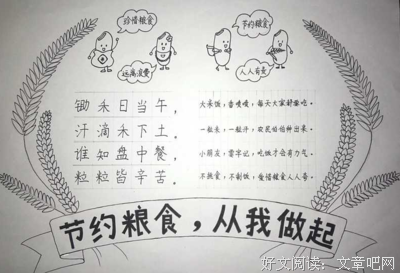 珍惜粮食
节约粮食
远离浪费
人人有责
锄禾日当午，
汗滴禾下土。
谁知盘中餐，
粒粒皆辛苦。
大米饭，香喷喷，每天大家都要吃。
一粒米，一粒汗，农民伯伯种出来。
小朋友，要牢记，吃饭才会有力气。
不挑食，不剩饭，爱惜粮食人人夸。
节约粮食，从我做起
好文阅读：文章吧网